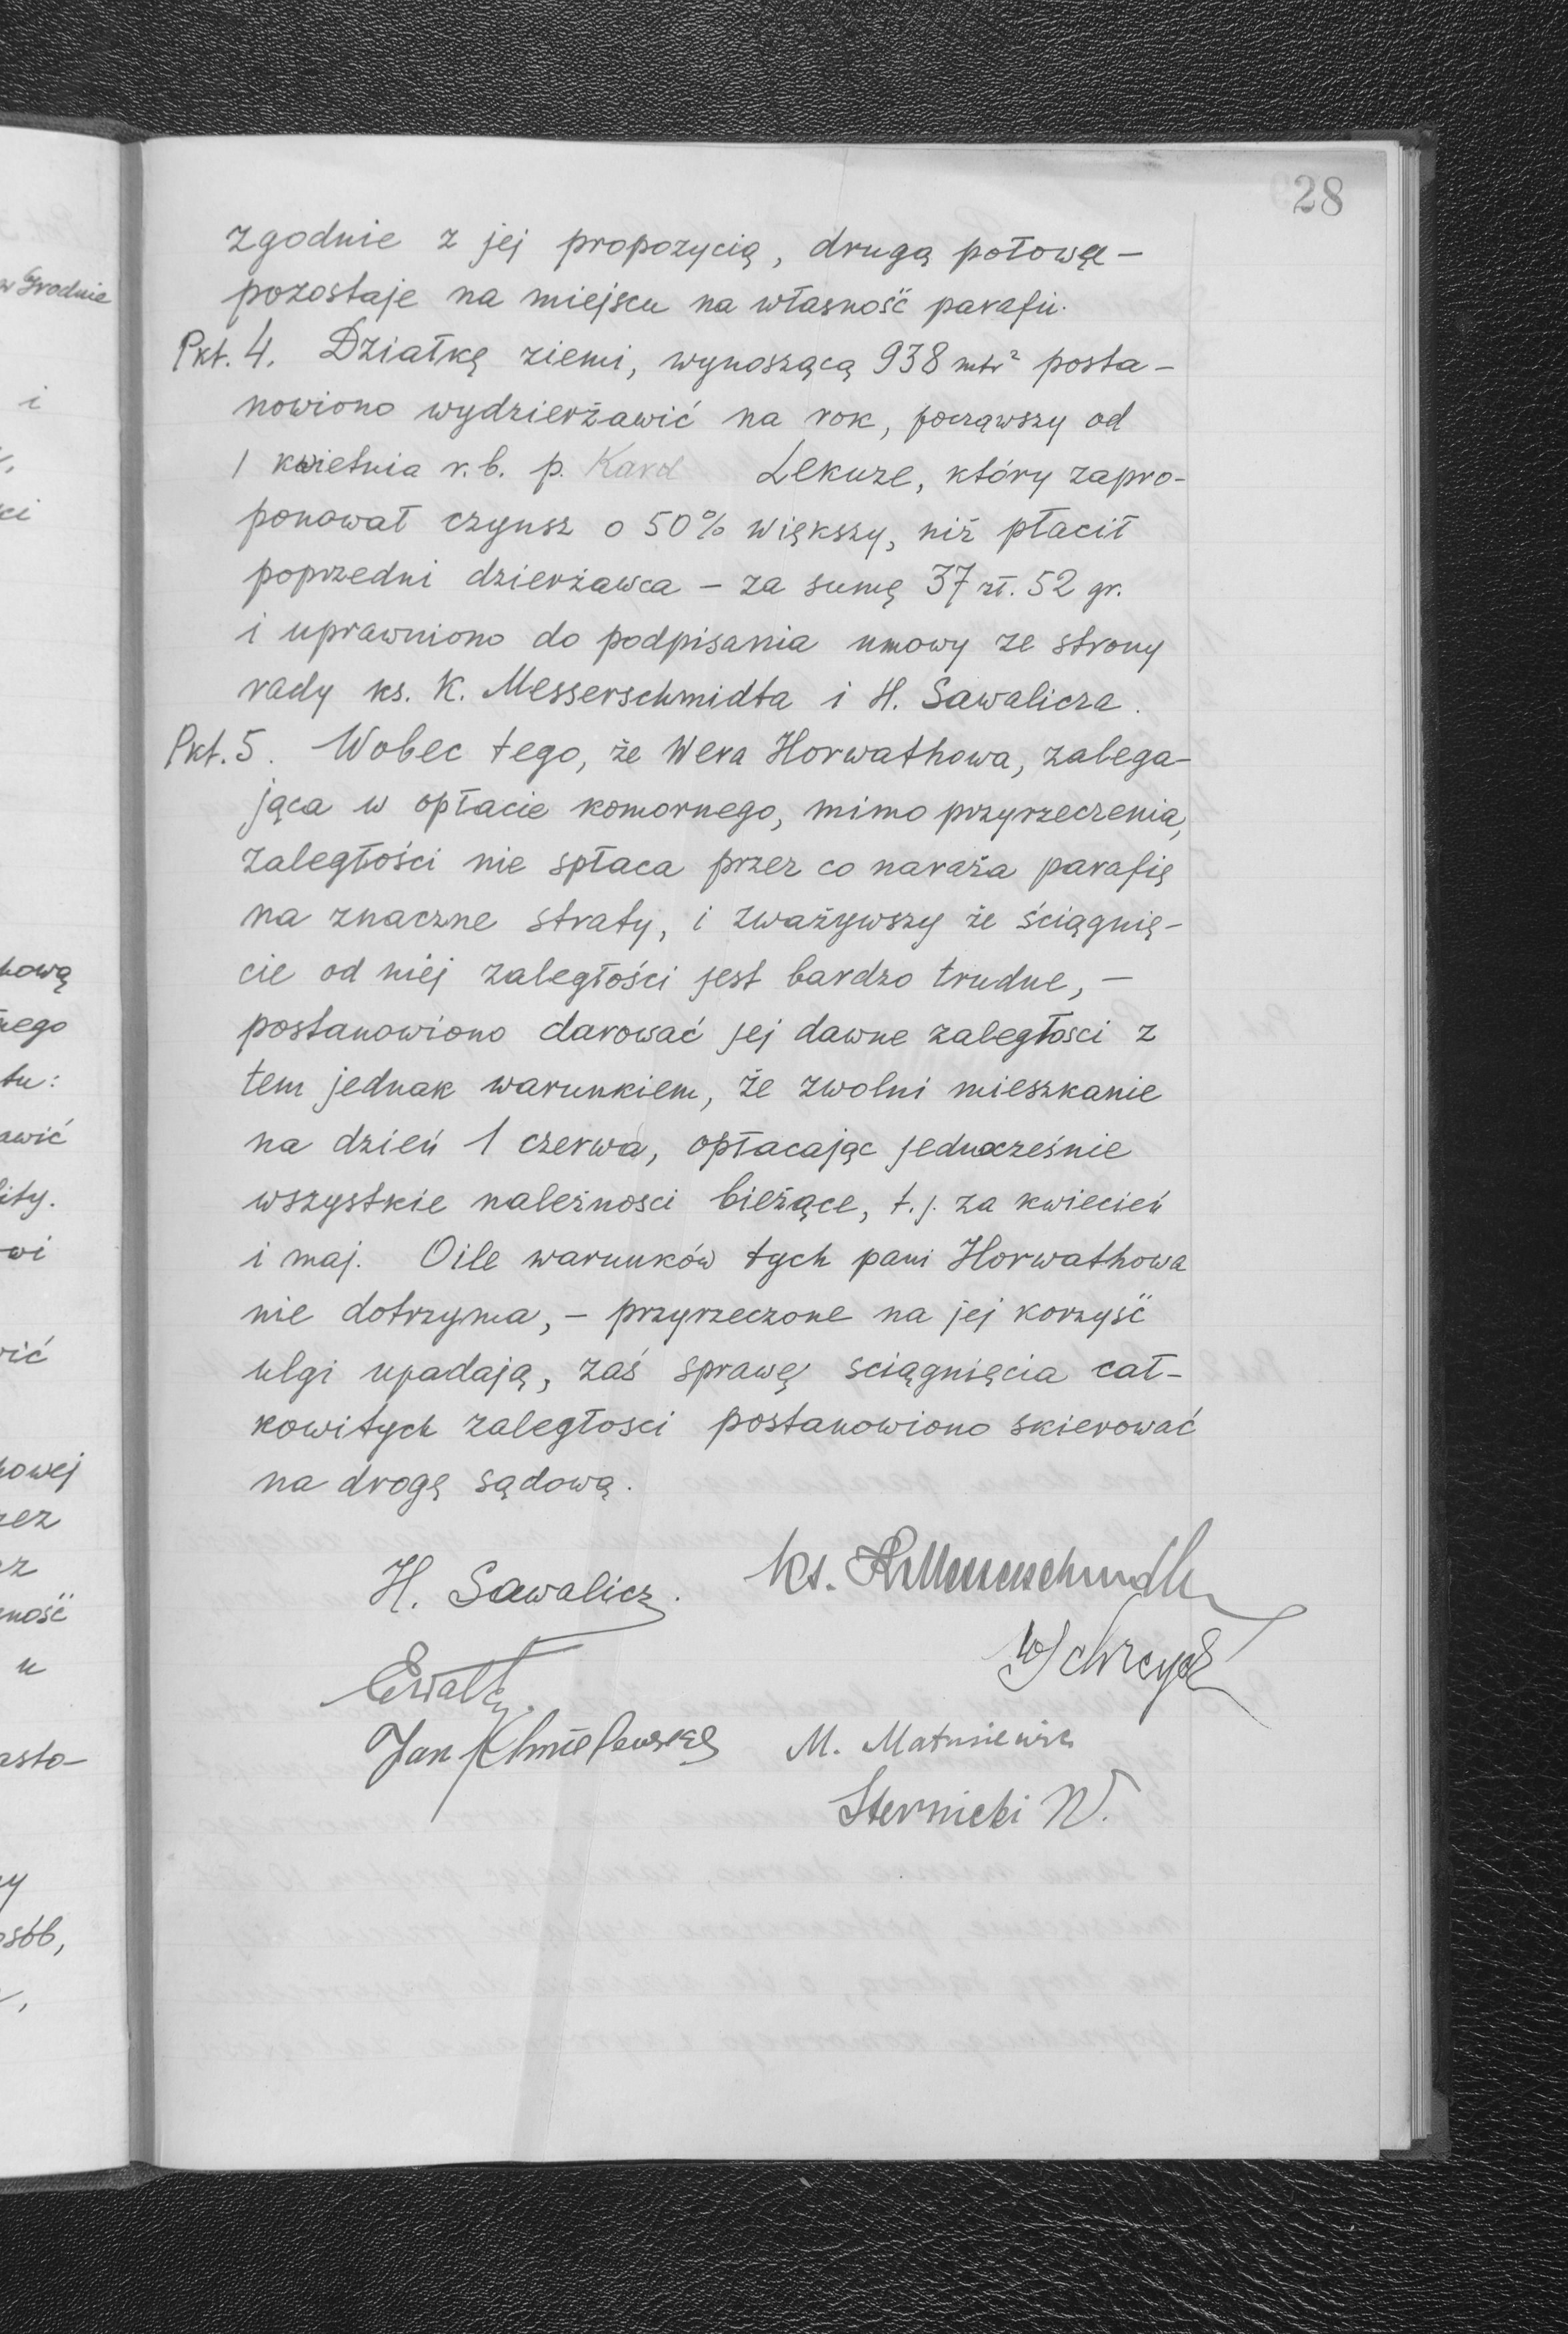 28
zgodnie z jej propozycią, drugą połowę —
pozostaje na miejscu na własność parafii.
Pkt. 4. Działkę ziemi, wynoszącą 938 mtr² posta-
nowiono wydzierżawić na rok, począwszy od
1 kwietnia r.b. p. Karol Lekuze, który zapro-
ponował czynsz o 50% większy, niż płacił
poprzedni dzierżawca — za sumę 37 zł. 52 gr.
i uprawniono do podpisania umowy ze strony
rady ks. K. Messerschmidta i H. Sawalicza.
Pkt. 5. Wobec tego, że Wera Horwathowa, zalega-
jąca w opłacie komornego, mimo przyrzeczenia,
zaległości nie spłaca przez co naraża parafię
na znaczne straty, i zważywszy że ściągnię-
cie od niej zaległości jest bardzo trudne, —
postanowiono darować jej dawne zaległosci z
tem jednak warunkiem, że zwolni mieszkanie
na dzień 1 czerwa, opłacając jednocześnie
wszystkie należnosci bieżące, t.j. za kwiecień
i maj. Oile warunków tych pani Horwathowa
nie dotrzyma, — przyrzeczone na jej korzyść
ulgi upadają, zaś sprawę sciągnięcia cał-
kowitych zaległosci postanowiono skierować
na drogę sądową.
H. Sawalicz. ks. K Messerschmidt
Ewalt
Jan Chmielewski M. Matusiewicz
Sternicki W.
w Grodnie
i
ową
nego
tu:
awić
ity.
wi
wić
owej
rez
ność
u
asto-
osób,